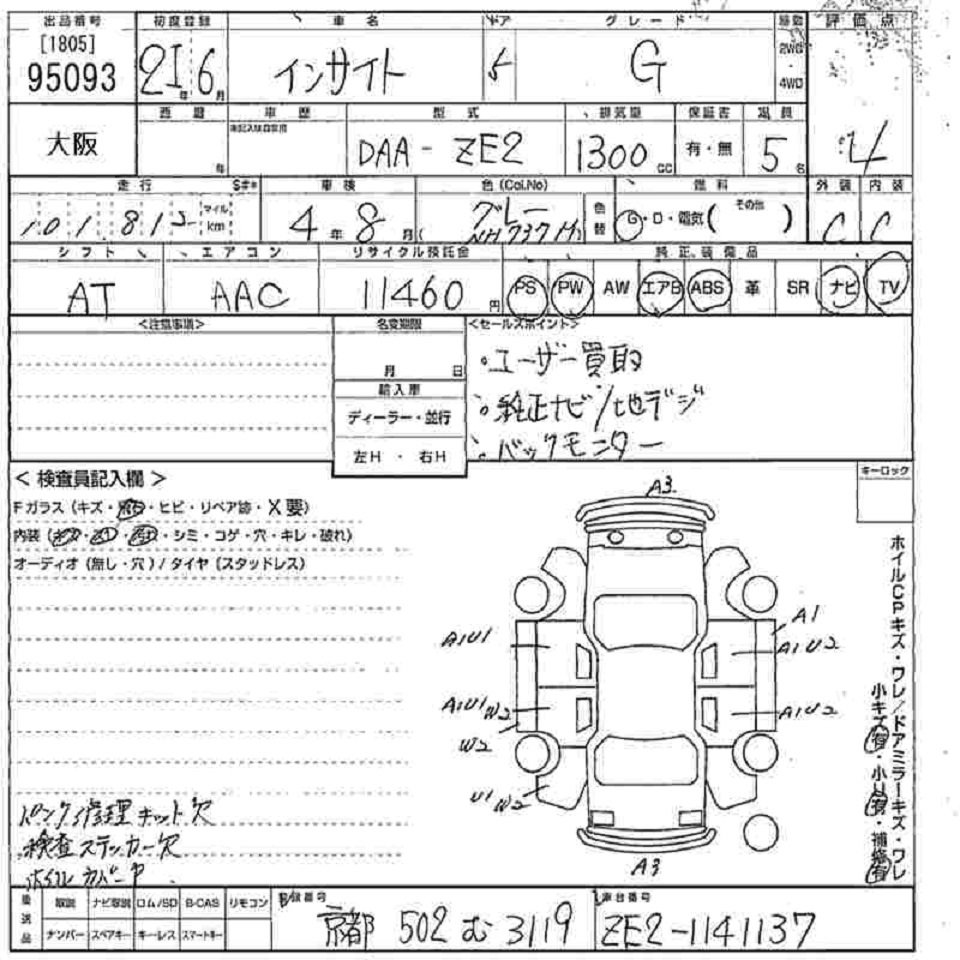 出品番号 初度登録 車名 ドア グレード 駆動 評価点
[1805]
95093 21年 6月 インサイト 5 G 2WD 4WD 4
西暦 車歴 型式 排気量 保証書 定員
大阪 年 DAA-ZE2 1300cc 有・無 5名
走行 車検 色(Col.No) 燃料 外装 内装
101,812 マイル km 4年 8月 グレー NH737M 色替 G・D・電気(その他) C C
シフト エアコン リサイクル預託金 純正装備品
AT AAC 11460円 PS PW AW エアB ABS 革 SR ナビ TV
<注意事項> 名変期限 <セールスポイント>
月 日
・ユーザー買取
輸入車
ディーラー・並行
・純正ナビ/地デジ
左H・右H
・バックモニター
<検査員記入欄> キーロック
Fガラス(キズ・・ヒビ・リペア跡・X要)
内装(・シミ・コゲ・穴・キレ・破れ)
オーディオ(無し・穴)/タイヤ(スタッドレス)
A3
A1
A1U1 A1U2
A1U1 W2 A1U2
W2
U1 W2
A3
ホイルCPキズ・ワレ/ドアミラーキズ・ワレ
小キズ有・小U有・補修有
パンク修理キット欠
検査ステッカー欠
ホイルカバー
後送品 取説 ナビ取説 ロム/SD B-CAS リモコン 登録番号 車台番号
ナンバー スペアキー キーレス スマートキー 京都 502 む 3119 ZE2-1141137